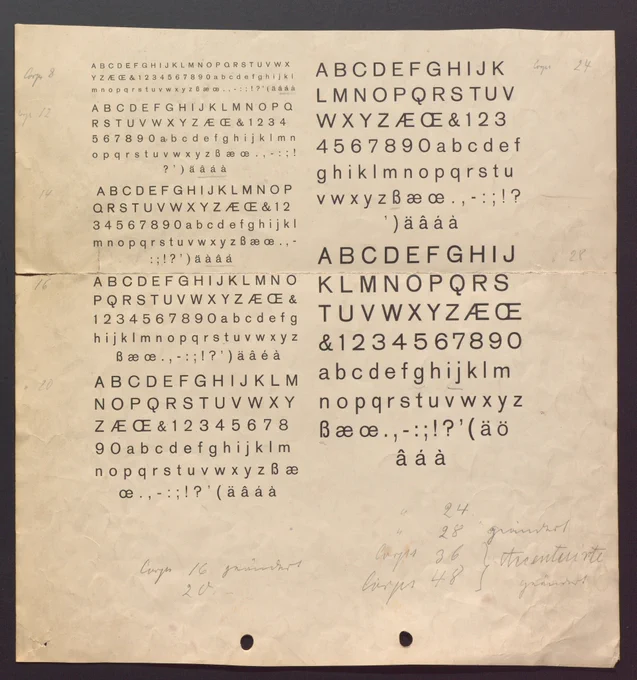 Corps 8
ABCDEFGHIJKLMNOPQRSTUVWX
YZÆŒ&1234567890abcdefghijkl
mnopqrstuvwxyzßæœ.,-:;!?'(äâáà
12
ABCDEFGHIJKLMNOPQ
RSTUVWXYZÆŒ&1234
567890abcdefghijklmn
opqrstuvwxyzßæœ.,-:;!
?')äâáà
14
ABCDEFGHIJKLMNOP
QRSTUVWXYZÆŒ&12
34567890abcdefghijkl
mnopqrstuvwxyzßæœ.,-
:;!?')äàáâ
16
ABCDEFGHIJKLMNO
PQRSTUVWXYZÆŒ&
1234567890abcdefg
hijklmnopqrstuvwxyz
ßæœ.,-:;!?')äâéà
20
ABCDEFGHIJKLM
NOPQRSTUVWXY
ZÆŒ&12345678
90abcdefghijklm
nopqrstuvwxyzßæ
œ.,-:;!?'(äâáà
Corps 24
ABCDEFGHIJK
LMNOPQRSTUV
WXYZÆŒ&123
4567890abcdef
ghiklmnopqrstu
vwxyzßæœ.,-:;!?
')äâáà
28
ABCDEFGHIJ
KLMNOPQRS
TUVWXYZÆŒ
&1234567890
abcdefghijklm
nopqrstuvwxyz
ßæœ.,-:;!?'(äö
âáà
Corps 16 geändert
20
" 24
" 28 geändert
Corps 36
Corps 48 geändert